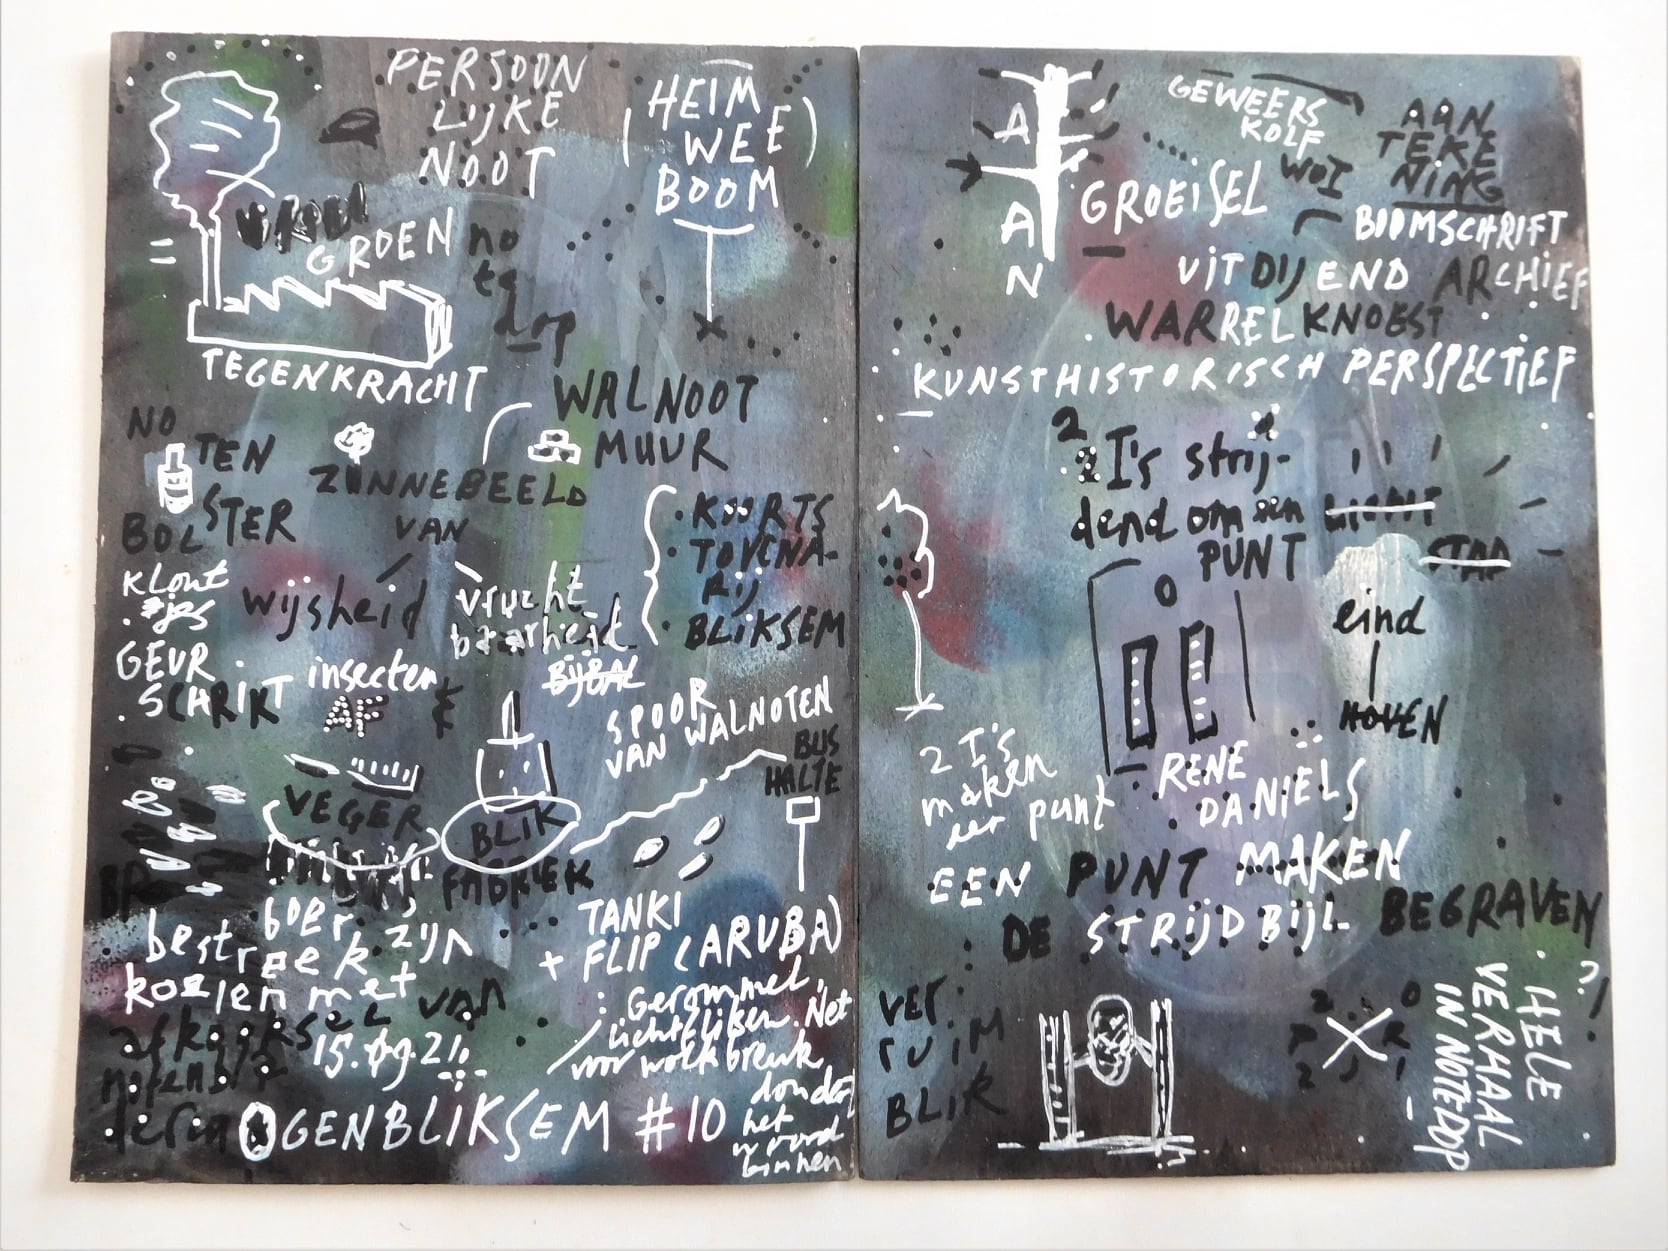 PERSOON
LIJKE
NOOT
(HEIM
WEE)
BOOM
GROEN
no
te
dop
TEGENKRACHT
WALNOOT
MUUR
NO
TEN
BOLSTER
ZINNEBEELD
VAN
wijsheid
vruchtbaarheid
KOORTS
TOVENA-
RIJ
BLIKSEM
Klont
jes
GEUR
SCHRIKT
insecten
AF
&
SPOOR
VAN WALNOTEN
BUS
HALTE
VEGER
BLIK
FABRIEK
boer
bestreek zijn
koeien met
afkooksel van
15.09.21.
TANKI
+ FLIP (ARUBA)
: Gerommel,
lichtflitsen. Net
voor wolkbreuk
donder
het
woord
binnen
OGENBLIKSEM #10
A
A
N
GEWEERS
KOLF
AAN
TEKE
NING
GROEISEL
WOI
BOOMSCHRIFT
UITDIJEND ARCHIEF
WARRELKNOEST
KUNSTHISTORISCH PERSPECTIEF
2
2 I's strij-
dend om een
PUNT
LICHT
STAD
eind
HOVEN
2 I's
maken
een punt
RENÉ
DANIËLS
EEN PUNT MAKEN
DE STRIJDBIJL BEGRAVEN
VER
RUIM
BLIK
HELE
VERHAAL
IN NOTEDOP
?!